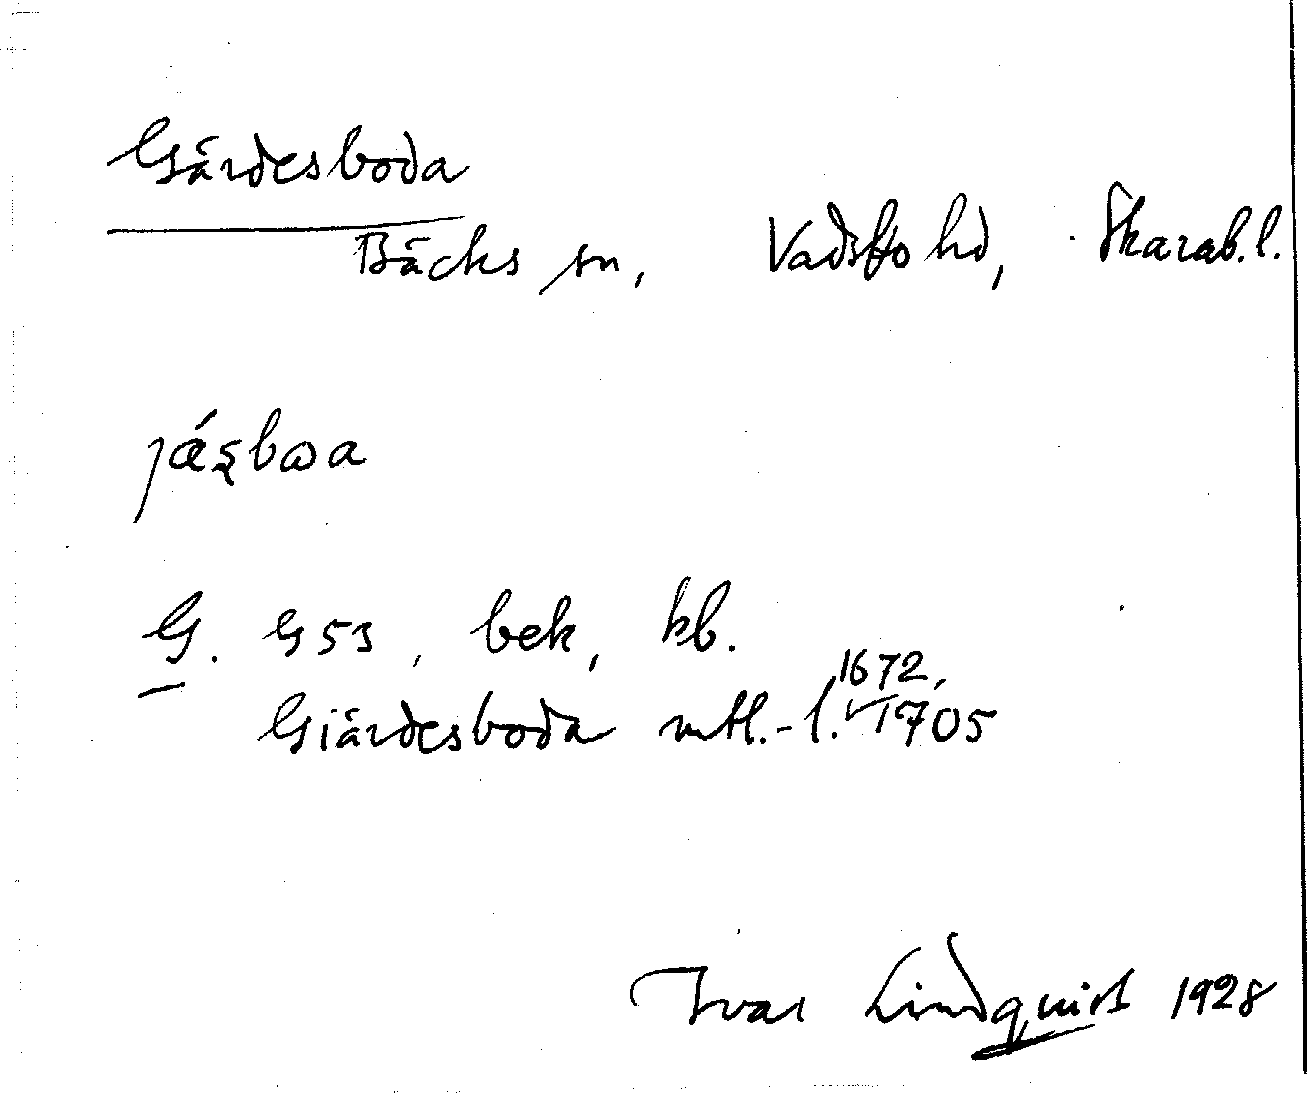 Gärdesboda
Bäcks sn, Vadsbo hd, Skarab.l.
jǽʂbωa
G. G53, bek, kb.
Giärdesboda mtl.-l. 1672, 1705
Ivar Lindquist 1928